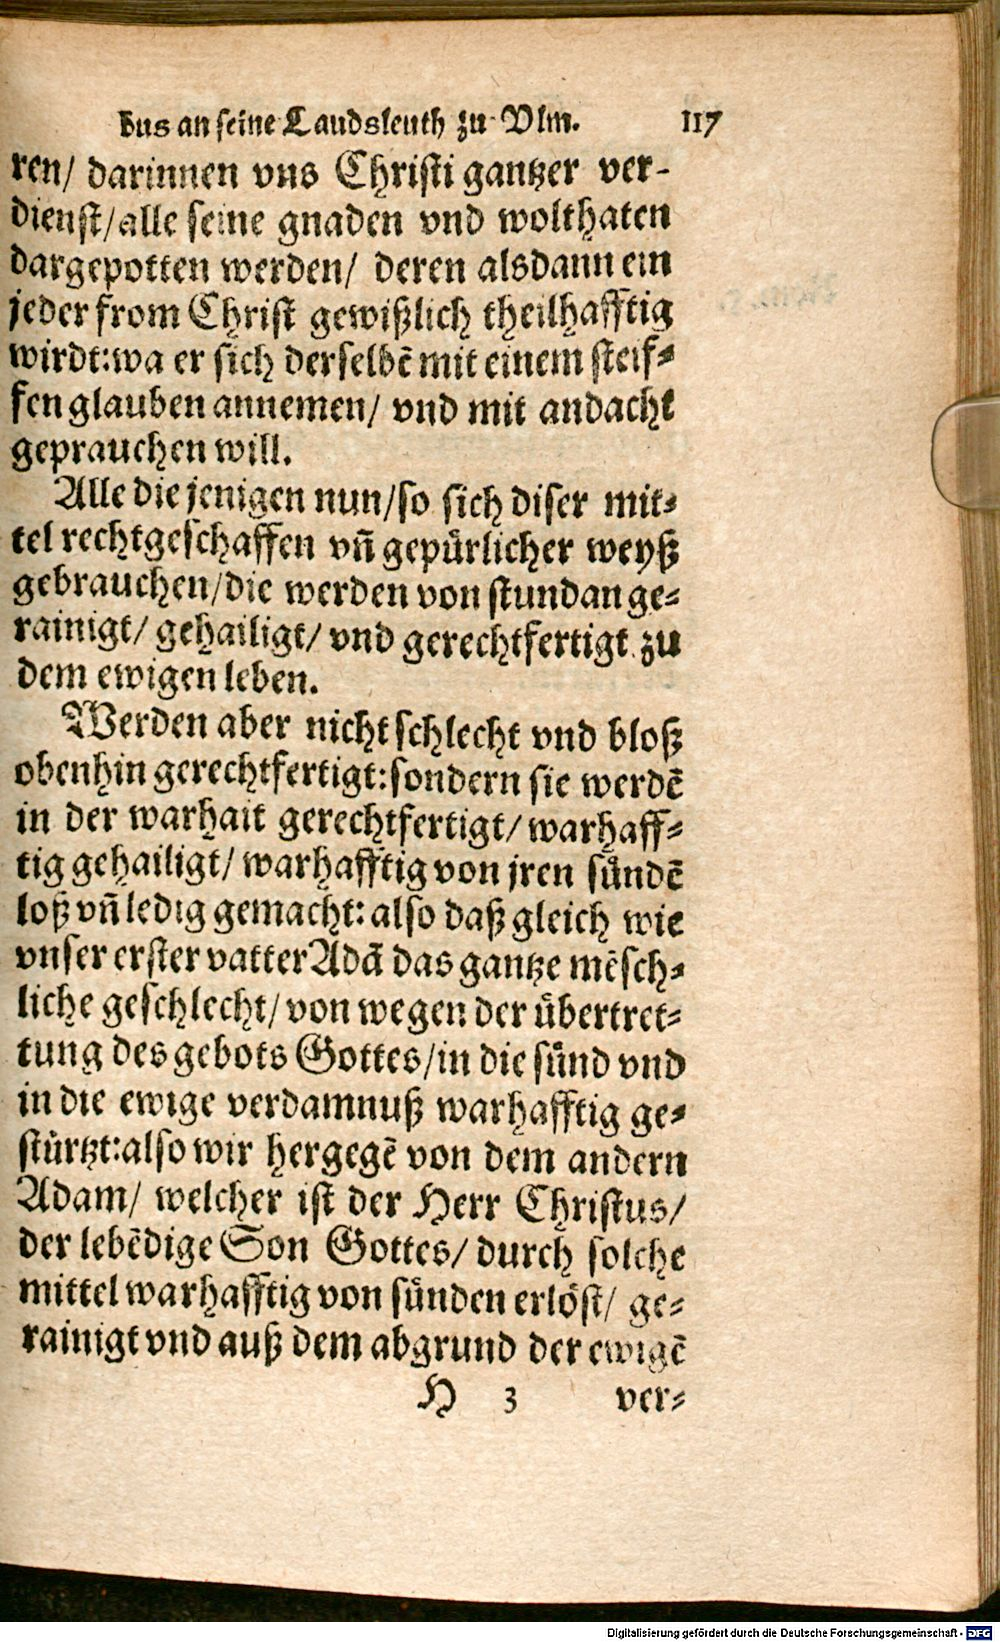 bus an seine Landsleuth zu Vlm. 117
ren/ darinnen vns Christi gantzer ver-
dienst/alle seine gnaden vnd wolthaten
dargepotten werden/ deren alsdann ein
jeder from Christ gewißlich theilhafftig
wirdt:wa er sich derselbē mit einem steif-
fen glauben annemen/ vnd mit andacht
geprauchen will.
Alle die jenigen nun/so sich diser mit-
tel rechtgeschaffen vñ gepürlicher weyß
gebrauchen/die werden von stundan ge-
rainigt/ gehailigt/ vnd gerechtfertigt zu
dem ewigen leben.
Werden aber nicht schlecht vnd bloß
obenhin gerechtfertigt:sondern sie werdē
in der warhait gerechtfertigt/ warhaff-
tig gehailigt/ warhafftig von jren sündē
loß vñ ledig gemacht: also daß gleich wie
vnser erster vatter Adā das gantze mēsch-
liche geschlecht/ von wegen der übertret-
tung des gebots Gottes/in die sünd vnd
in die ewige verdamnuß warhafftig ge-
stürtzt:also wir hergegē von dem andern
Adam/ welcher ist der Herr Christus/
der lebēdige Son Gottes/ durch solche
mittel warhafftig von sünden erlöst/ ge-
rainigt vnd auß dem abgrund der ewigē
H 3 ver-
Digitalisierung gefördert durch die Deutsche Forschungsgemeinschaft - DFG